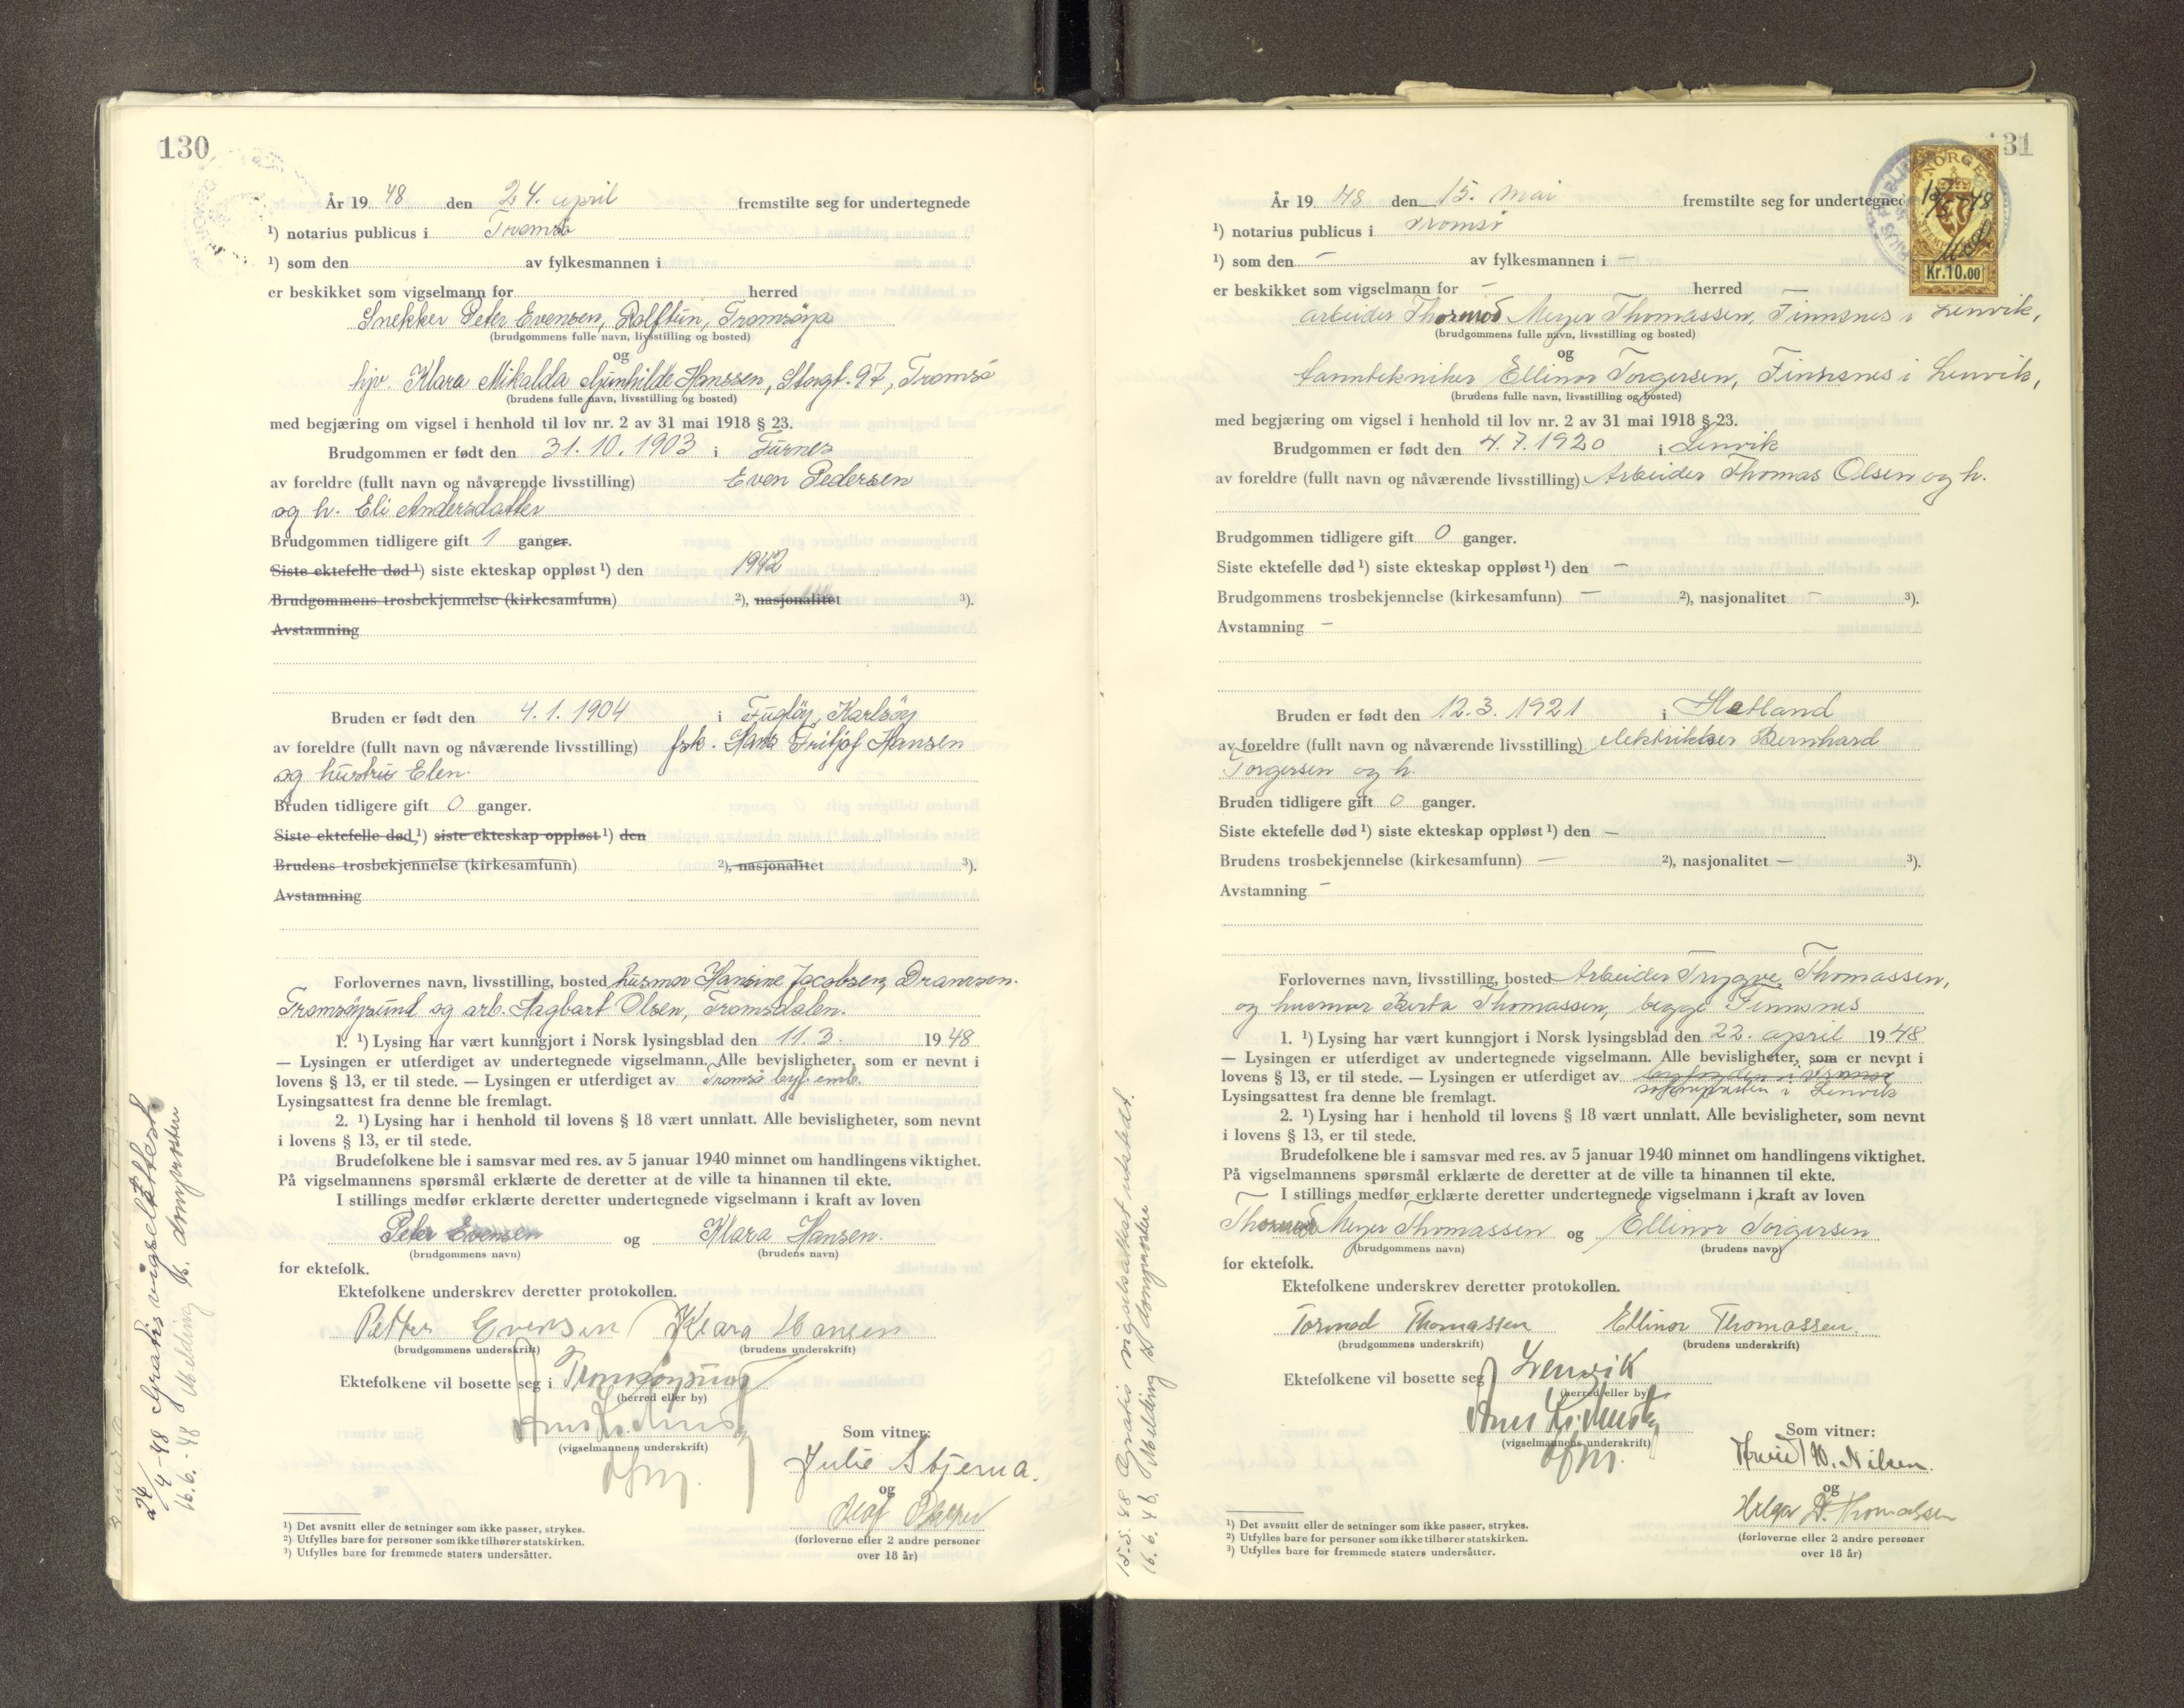 130
År 19 48 den 24. april fremstilte seg for undertegnede
¹) notarius publicus i Tromsø
¹) som den av fylkesmannen i
er beskikket som vigselmann for herred
Snekker Peter Evensen, Rolftun, Tromsøya
(brudgommens fulle navn, livsstilling og bosted)
og
hjv. Klara Mikalda Gunhilde Hanssen, Storgt. 97, Tromsø
(brudens fulle navn, livsstilling og bosted)
med begjæring om vigsel i henhold til lov nr. 2 av 31 mai 1918 § 23.
Brudgommen er født den 31. 10. 1903 i Furnes
av foreldre (fullt navn og nåværende livsstilling) Even Pedersen
og h. Eli Andersdatter
Brudgommen tidligere gift 1 ganger.
Siste ektefelle død ¹) siste ekteskap oppløst ¹) den 1942
Brudgommens trosbekjennelse (kirkesamfunn) ²), nasjonalitet ³).
Avstamning
Bruden er født den 4. 1. 1904 i Fugløy, Karlsøy
av foreldre (fullt navn og nåværende livsstilling) fsk. Hans Fritjof Hansen
og hustru Elen.
Bruden tidligere gift 0 ganger.
Siste ektefelle død ¹) siste ekteskap oppløst ¹) den
Brudens trosbekjennelse (kirkesamfunn) ²), nasjonalitet ³).
Avstamning
Forlovernes navn, livsstilling, bosted husmor Hansine Jacobsen,
Tromsøysund og arb. Hagbart Olsen, Tromsdalen.
1. ¹) Lysing har vært kunngjort i Norsk lysingsblad den 11. 3. 19 48
— Lysingen er utferdiget av undertegnede vigselmann. Alle bevisligheter, som er nevnt i
lovens § 13, er til stede. — Lysingen er utferdiget av Tromsø byf. emb.
Lysingsattest fra denne ble fremlagt.
2. ¹) Lysing har i henhold til lovens § 18 vært unnlatt. Alle bevisligheter, som nevnt
i lovens § 13, er til stede.
Brudefolkene ble i samsvar med res. av 5 januar 1940 minnet om handlingens viktighet.
På vigselmannens spørsmål erklærte de deretter at de ville ta hinannen til ekte.
I stillings medfør erklærte deretter undertegnede vigselmann i kraft av loven
Peter Evensen og Klara Hansen.
(brudgommens navn) (brudens navn)
for ektefolk.
Ektefolkene underskrev deretter protokollen.
Petter Evensen Klara Hansen
(brudgommens underskrift) (brudens underskrift)
Ektefolkene vil bosette seg i Tromsøysund
(herred eller by)
(vigselmannens underskrift)
Som vitner:
Julie Stjerna.
og
Olaf
(forloverne eller 2 andre personer
over 18 år)
¹) Det avsnitt eller de setninger som ikke passer, strykes.
²) Utfylles bare for personer som ikke tilhører statskirken.
³) Utfylles bare for fremmede staters undersåtter.
24/4-48 Gratis vigselattest
16.6.-48 Melding til domprosten
131
NORGE
Kr.10.00
År 19 48 den 15. mai fremstilte seg for undertegnede
¹) notarius publicus i Tromsø
¹) som den – av fylkesmannen i –
er beskikket som vigselmann for – herred –
arbeider Thormod Meyer Thomassen, Finnsnes i Lenvik,
(brudgommens fulle navn, livsstilling og bosted)
og
tanntekniker Ellinor Torgersen, Finnsnes i Lenvik,
(brudens fulle navn, livsstilling og bosted)
med begjæring om vigsel i henhold til lov nr. 2 av 31 mai 1918 § 23.
Brudgommen er født den 4. 7. 1920 i Lenvik
av foreldre (fullt navn og nåværende livsstilling) Arbeider Thomas Olsen og h.
Brudgommen tidligere gift 0 ganger.
Siste ektefelle død ¹) siste ekteskap oppløst ¹) den –
Brudgommens trosbekjennelse (kirkesamfunn) – ²), nasjonalitet – ³).
Avstamning –
Bruden er født den 12. 3. 1921 i Hetland
av foreldre (fullt navn og nåværende livsstilling) elektriker Bernhard
Torgersen og h.
Bruden tidligere gift 0 ganger.
Siste ektefelle død ¹) siste ekteskap oppløst ¹) den –
Brudens trosbekjennelse (kirkesamfunn) – ²), nasjonalitet – ³).
Avstamning –
Forlovernes navn, livsstilling, bosted Arbeider Trygve Thomassen,
og husmor Berta Thomassen, begge Finnsnes
1. ¹) Lysing har vært kunngjort i Norsk lysingsblad den 22. april 19 48
— Lysingen er utferdiget av undertegnede vigselmann. Alle bevisligheter, som er nevnt i
lovens § 13, er til stede. — Lysingen er utferdiget av byfogden i Tromsø
sognepresten i Lenvik
Lysingsattest fra denne ble fremlagt.
2. ¹) Lysing har i henhold til lovens § 18 vært unnlatt. Alle bevisligheter, som nevnt
i lovens § 13, er til stede.
Brudefolkene ble i samsvar med res. av 5 januar 1940 minnet om handlingens viktighet.
På vigselmannens spørsmål erklærte de deretter at de ville ta hinannen til ekte.
I stillings medfør erklærte deretter undertegnede vigselmann i kraft av loven
Thormod Meyer Thomassen og Ellinor Torgersen
(brudgommens navn) (brudens navn)
for ektefolk.
Ektefolkene underskrev deretter protokollen.
Tormod Thomassen Ellinor Thomassen.
(brudgommens underskrift) (brudens underskrift)
Ektefolkene vil bosette seg i Lenvik
(herred eller by)
(vigselmannens underskrift)
Som vitner:
Nilsen.
og
Helga Thomassen
(forloverne eller 2 andre personer
over 18 år)
¹) Det avsnitt eller de setninger som ikke passer, strykes.
²) Utfylles bare for personer som ikke tilhører statskirken.
³) Utfylles bare for fremmede staters undersåtter.
15.5.48 Gratis vigselsattest utstedt.
16.6.48 Melding til domprosten